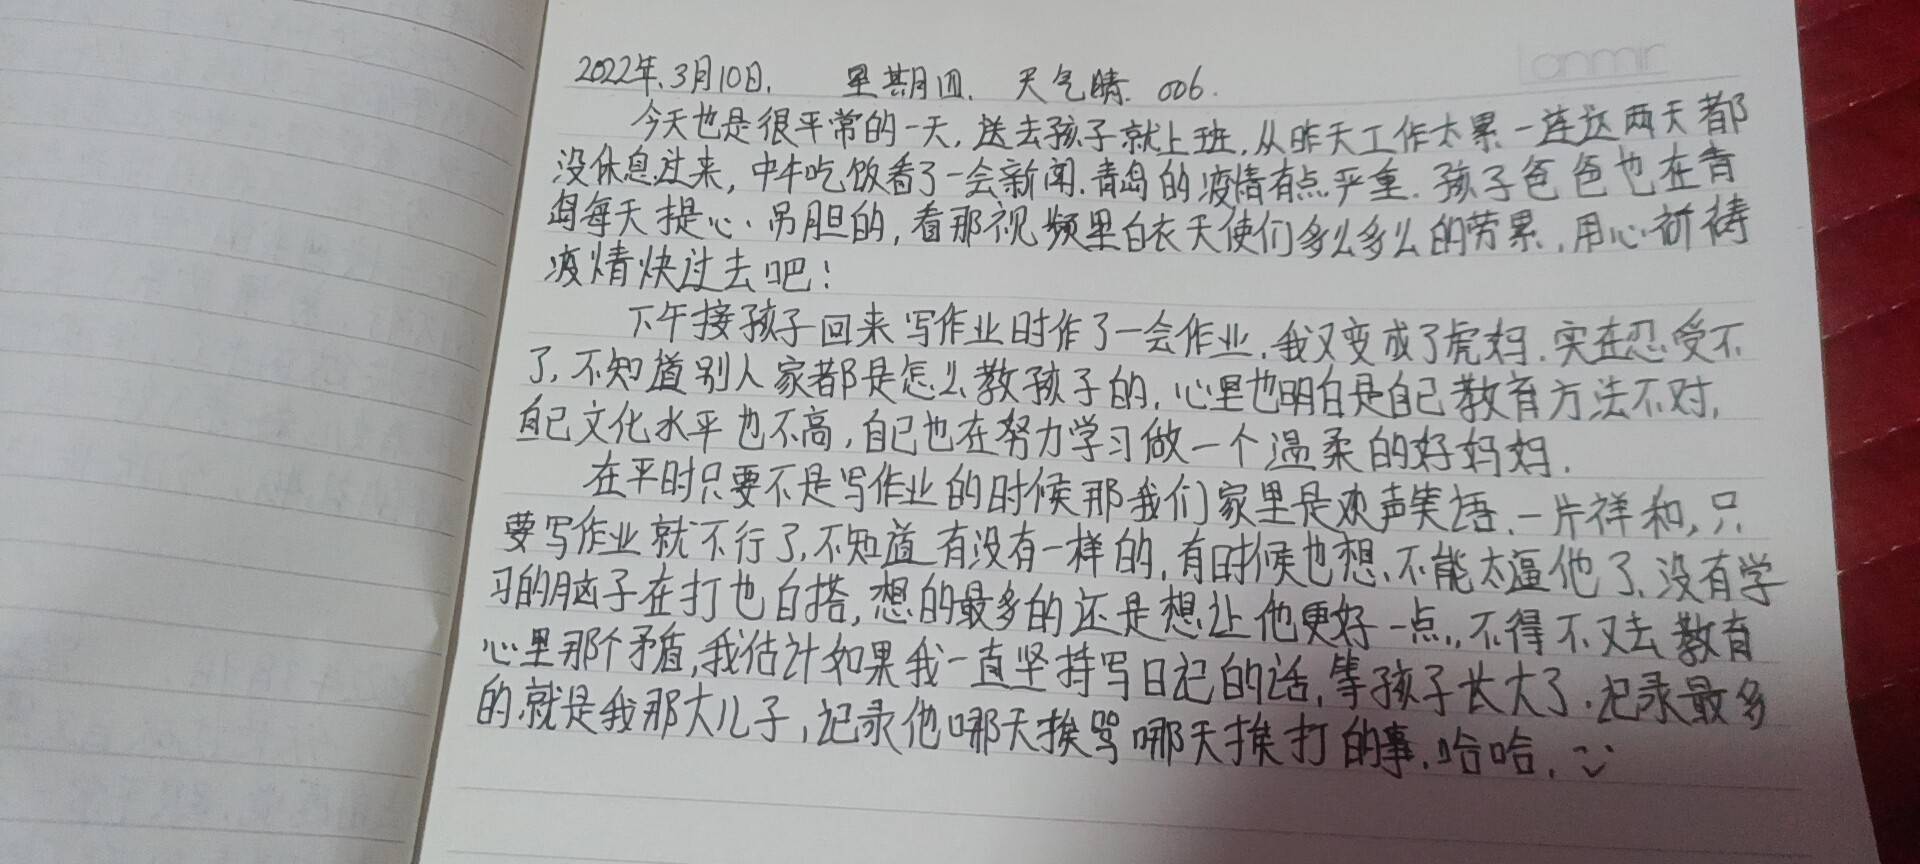 Lanmir
2022年.3月10日. 星期四. 天气晴. 006.
今天也是很平常的一天,送去孩子就上班,从昨天工作太累一连这两天都
没休息过来,中午吃饭看了一会新闻.青岛的疫情有点严重.孩子爸爸也在青
岛每天提心吊胆的,看那视频里白衣天使们多么多么的劳累,用心祈祷
疫情快过去吧!
下午接孩子回来写作业时作了一会作业,我又变成了虎妈.实在忍受不
了,不知道别人家都是怎么教孩子的,心里也明白是自己教育方法不对,
自己文化水平也不高,自己也在努力学习做一个温柔的好妈妈.
在平时只要不是写作业的时候那我们家里是欢声笑语.一片祥和,只
要写作业就不行了,不知道有没有一样的,有时候也想、不能太逼他了、没有学
习的脑子在打也白搭,想的最多的还是想让他更好一点,,不得不又去教育
心里那个矛盾,我估计如果我一直坚持写日记的话,等孩子长大了.记录最多
的.就是我那大儿子,记录他哪天挨骂哪天挨打的事.哈哈.